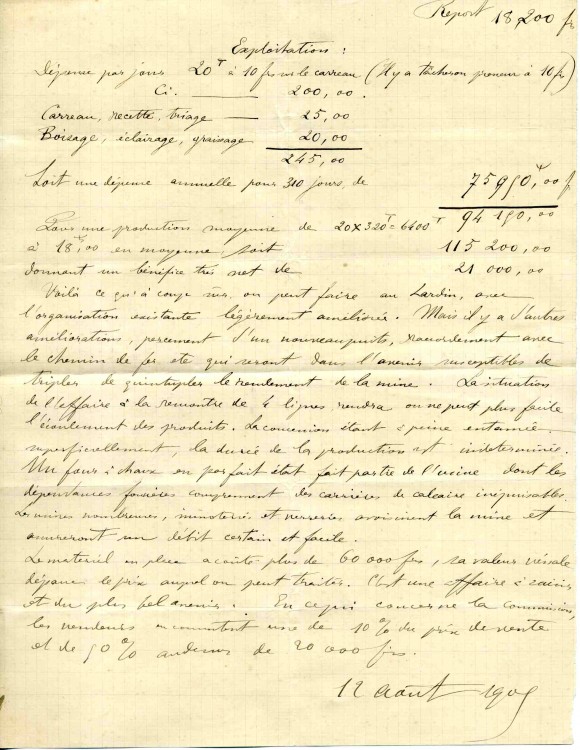 Report 18 200 frs
Exploitation :
Dépense par jours 20T à 10 frs sur le carreau (Il y a tâcheron preneur à 10 fr)
Ci. —— 200,00.
Carreau, recette, triage — 25,00
Boisage, éclairage, graissage 20,00
245,00
Soit une dépense annuelle pour 310 jours, de 75950,00 f
94150,00
Pour une production moyenne de 20x320T=6400T
à 18f,00 en moyenne soit 115 200,00
donnant un bénéfice très net de 21 000,00
Voilà ce qu'à coup sûr, on peut faire au Lardin, avec
l'organisation existante légèrement améliorée. Mais il y a d'autres
améliorations, percement d'un nouveau puits, raccordement avec
le chemin de fer etc qui seront dans l'avenir susceptibles de
tripler de quintupler le rendement de la mine. La situation
de l'affaire à la rencontre de 4 lignes, rendra on ne peut plus facile
l'écoulement des produits. La concession étant à peine entamée
superficiellement, la durée de la production est indéterminée.
Un four à chaux en parfait état fait partie de l'usine dont les
dépendances foncières comprennent des carrières de calcaire inépuisables.
Les usines nombreuses, minoteries et verreries avoisinent la mine et
assureront un débit certain et facile.
Le matériel en place a coûté plus de 60 000 frs, sa valeur vénale
dépasse le prix auquel on peut traiter. C'est une affaire à saisir
et du plus bel avenir. En ce qui concerne la commission,
les vendeurs en consentent une de 10% du prix de vente
et de 50% au dessus de 20 000 frs.
12 août 1905